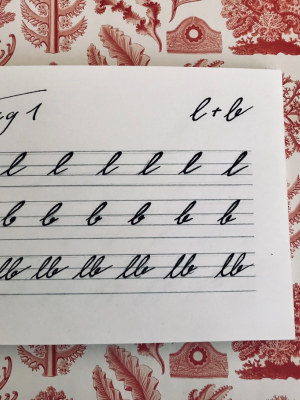 ag 1
l + b
l l l l l l
b b b b b b
lb lb lb lb lb lb